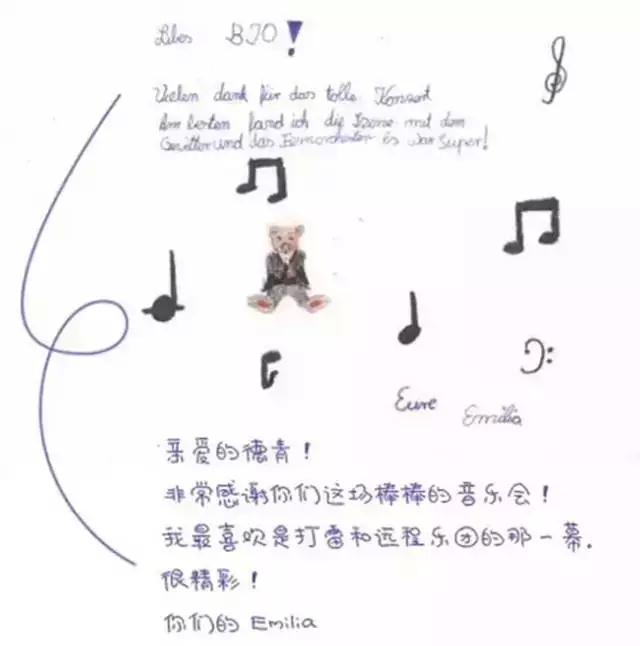 Liebes BJO!
Vielen dank für das tolle Konzert
Am besten fand ich die Szene mit dem
Gewitter und das Fernorchester es war Super!
Eure Emilia
亲爱的德青!
非常感谢你们这场棒棒的音乐会!
我最喜欢是打雷和远程乐团的那一幕.
很精彩!
你们的 Emilia